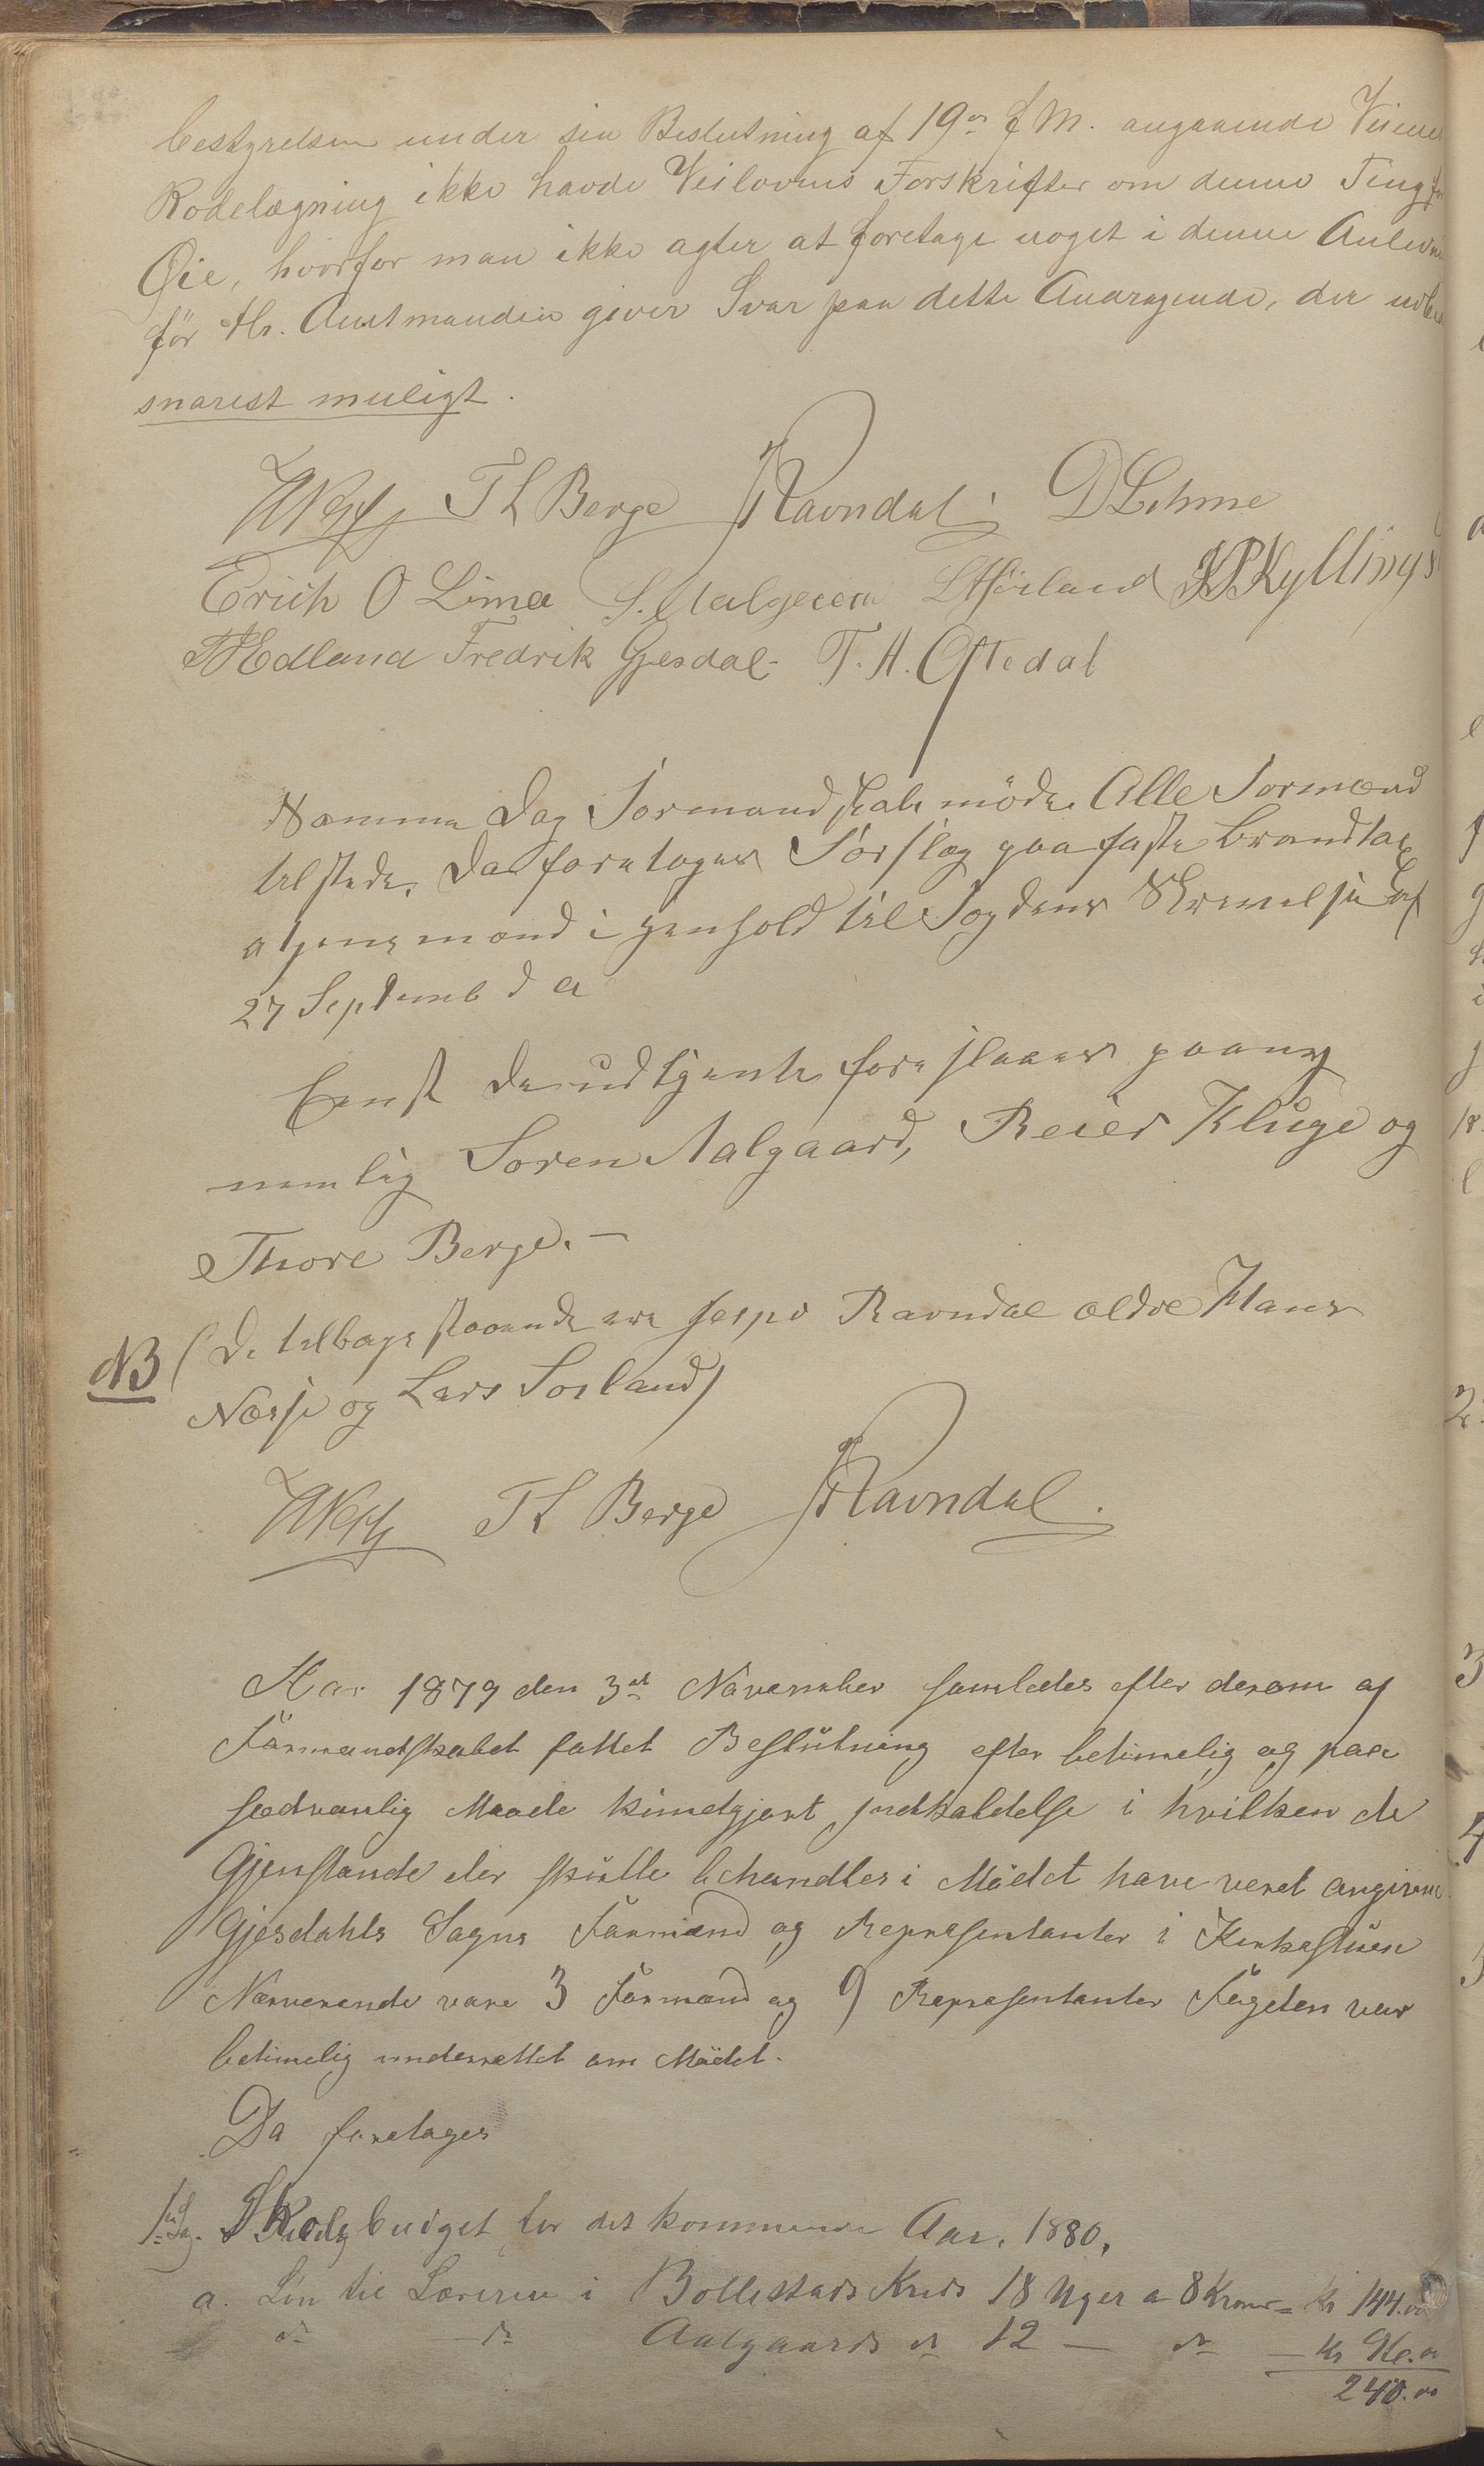 bestyrelsen under sin Beslutning af 19de f M. angaaende Veiene
Rodelægning ikke havde Veilovens Forskrifter om denne Ting for
Øie, hvorfor man ikke agter at foretage noget i denne Anledn
før Hr. Amtmanden giver Svar paa dette Andragende, der udbe
snarest muligt.
T L Berge JRavndal DLima
Erich O Lima S. Aalgaard LSørland KPKyllings
Edland Fredrik Gjesdal T. A. Oftedal
Samme Dag Formandskabsmøde. Alle Formænd
tilstede. Da foretoges Forslag paa faste Brandtax
ationsmænd i Henhold til Fogdens Skrivelse af
27 Septemb d a
De udtjente foreslaaes paany
nemlig Soren Aalgaard, Reier Kluge og
Thore Berge. —
NB (De tilbagestaaende ere Jesper Ravndal ældre Hans
Næsse og Lars Sorland)
T L Berge JRavndal.
Aar 1879 den 3de November samledes efter derom af
Formandskabet fattet Beslutning efter betimelig og paa
sædvanlig Maade kundgjort Indkaldelse i hvilken de
Gjenstande der skulle behandles i Mødet have veret angivne
Gjesdahls Sogns Formænd og Repræsentanter i Kirkestuen
Nærverende vare 3 Formænd og 9 Repræsentanter Fogden var
betimelig underrettet om Mødet.
Da foretages
1ste Sag. Skolebudget for det kommende Aar. 1880.
a. Løn til Læreren i Bollestads Kreds 18 Uger a 8 Kroner = Kr 144.00
do — do Aalgaards do 12 — do — Kr 96.00
240.00